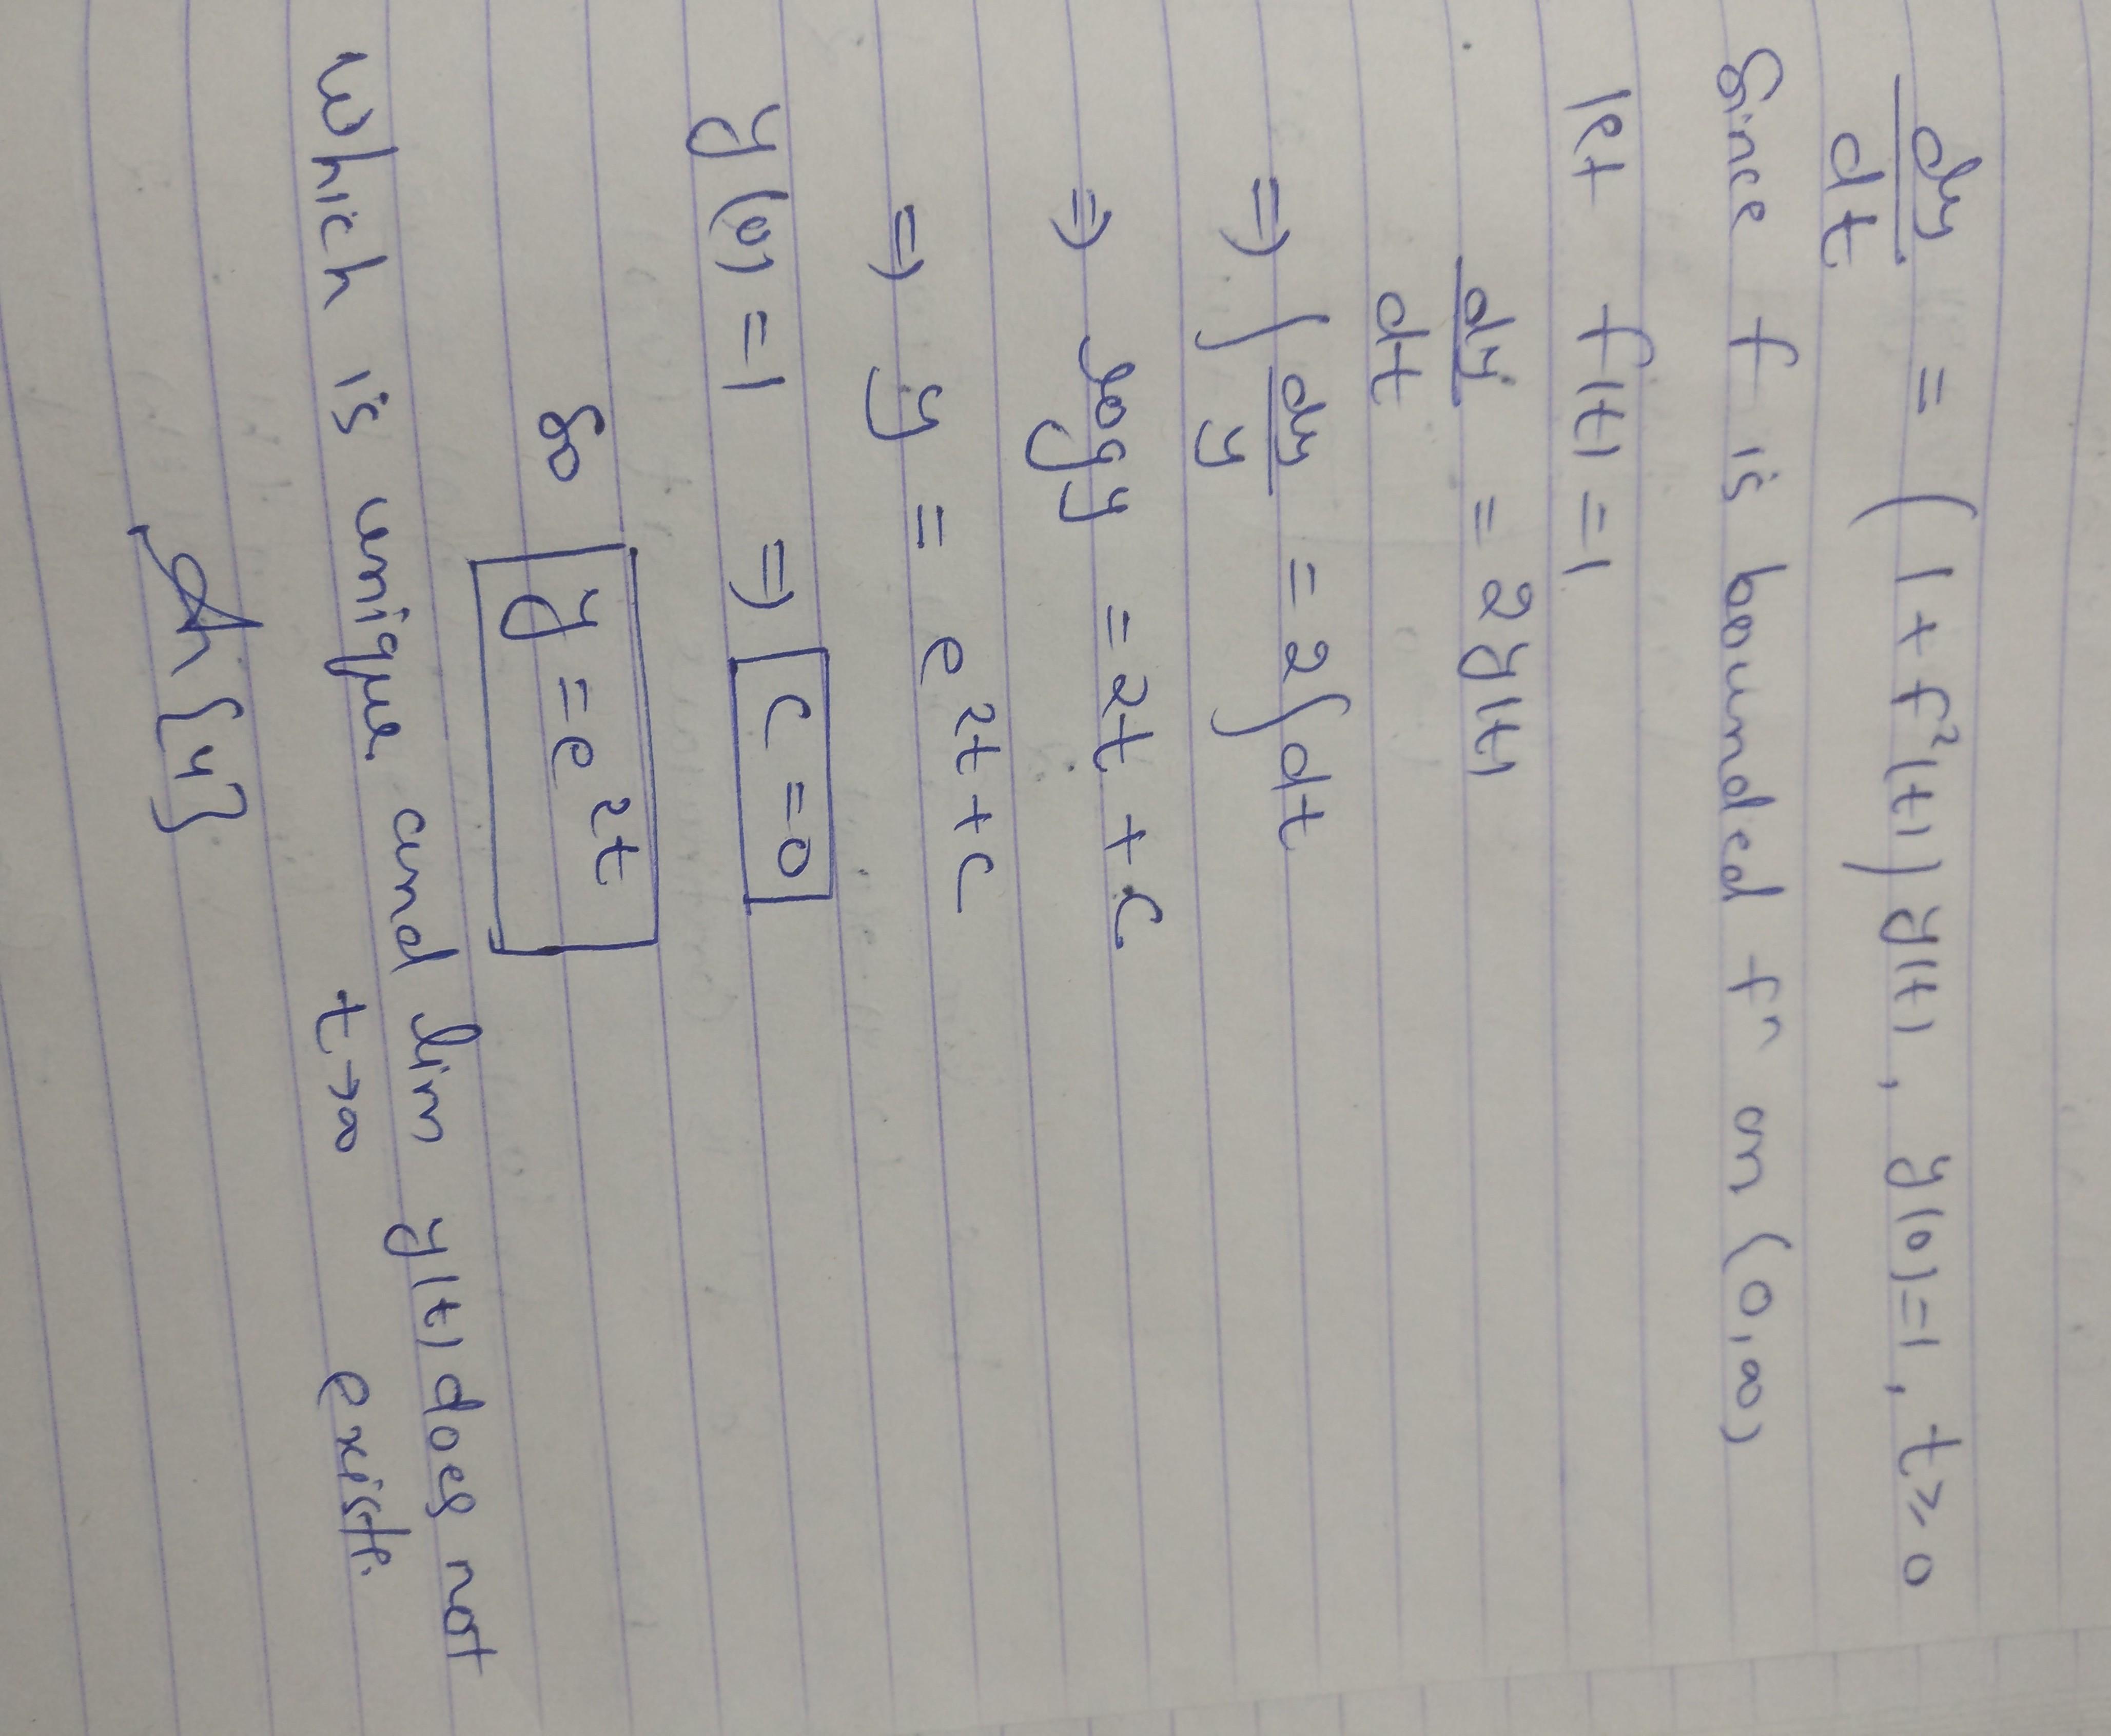 dy/dt = (1 + f²(t)) y(t), y(0)=1, t ≥ 0
Since f is bounded fⁿ on (0,∞)
let f(t) = 1
dy/dt = 2y(t)
⇒ ∫ dy/y = 2∫dt
⇒ log y = 2t + c
⇒ y = e^2t + c
y(0) = 1 ⇒ c = 0
So y = e^2t
Which is unique and lim t→∞ y(t) does not
exist.
{4}